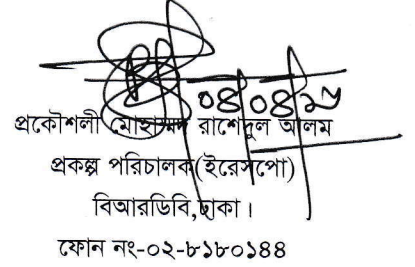 ০৪/০৪/২৮
প্রকৌশলী মোহাম্মদ রাশেদুল আলম
প্রকল্প পরিচালক(ইরেসপো)
বিআরডিবি,ঢাকা।
ফোন নং-০২-৮১৮০১৪৪